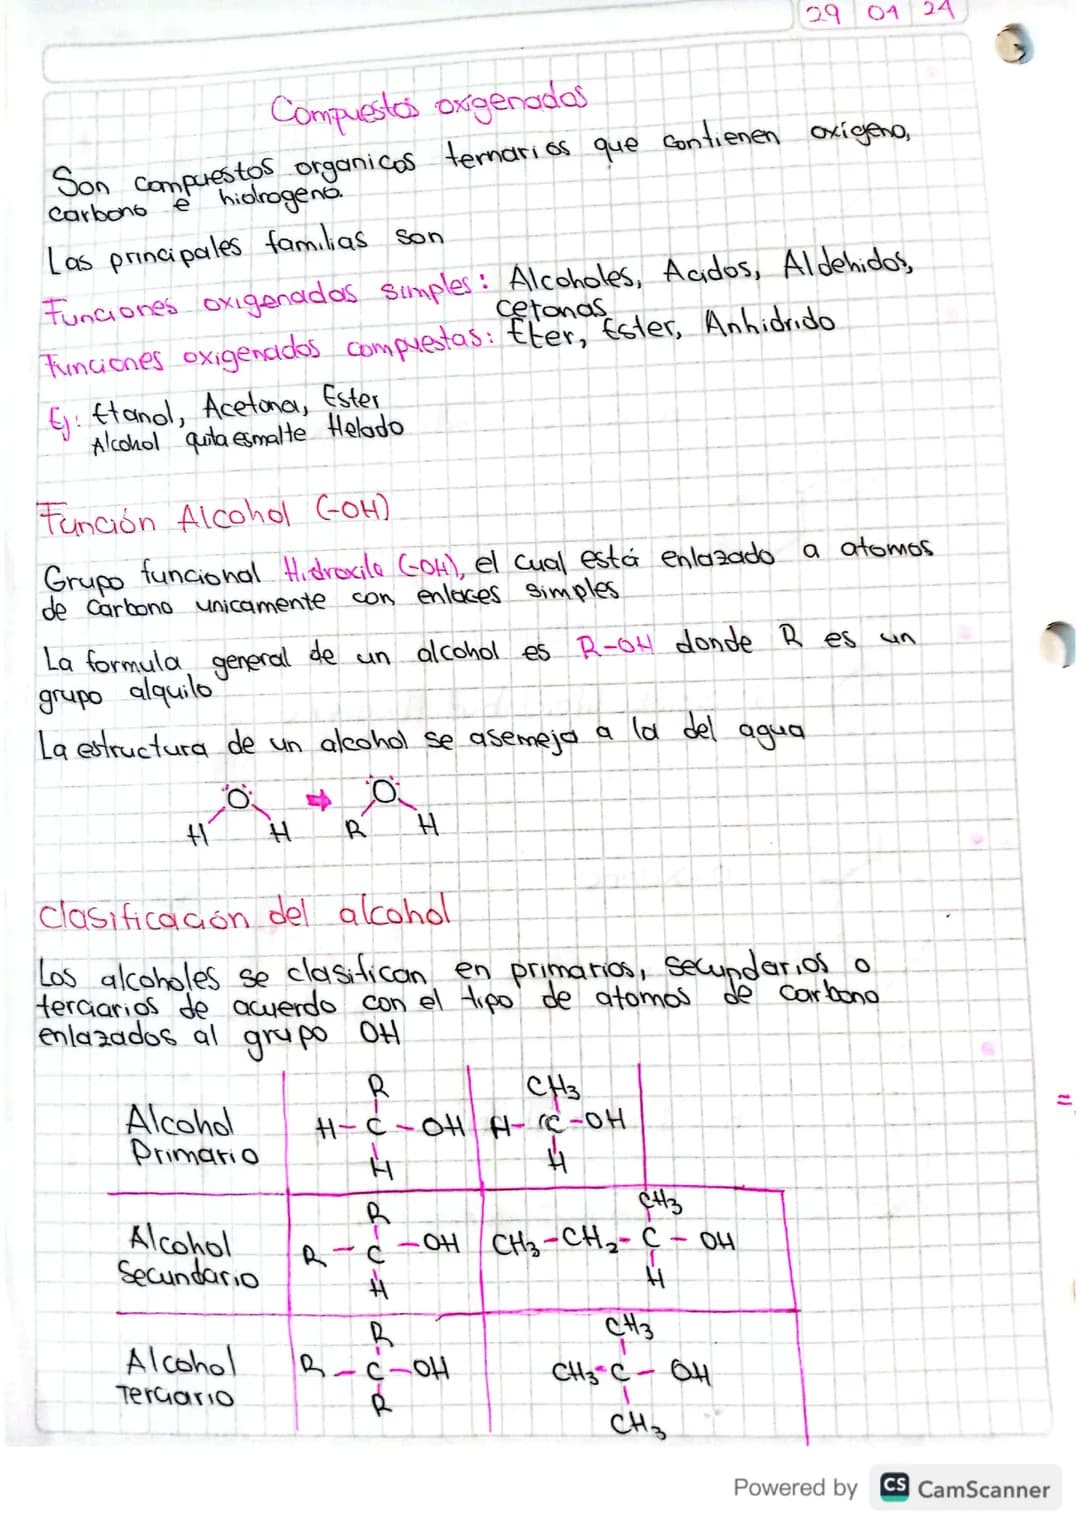 29 01 24
Compuestos oxigenados
Son compuestos organicos ternarios que contienen oxígeno,
carbono e hidrogeno.
Las principales familias son
Funciones oxigenadas simples: Alcoholes, Acidos, Aldehidos,
cetonas
Funciones oxigenados compuestas: Eter, Ester, Anhidrido
Ej: Etanol, Acetona, Ester
Alcohol quita esmalte Helado
Función Alcohol (-OH)
Grupo funcional Hidroxilo (-OH), el cual está enlazado a atomos
de Carbono unicamente con enlaces simples
La formula general de un alcohol es R-OH donde R es un
grupo alquilo
La estructura de un alcohol se asemeja a la del agua
O ⇒ O
H H R H
Clasificación del alcohol
Los alcoholes se clasifican en primarios, secundarios o
terciarios de acuerdo con el tipo de atomos de carbono
enlazados al grupo OH
R CH3
Alcohol H-C-OH H-C-OH
Primario H H
R CH3
Alcohol R-C-OH CH3-CH2-C-OH
Secundario H H
R CH3
Alcohol R-C-OH CH3-C-OH
Terciario R CH3
Powered by CS CamScanner